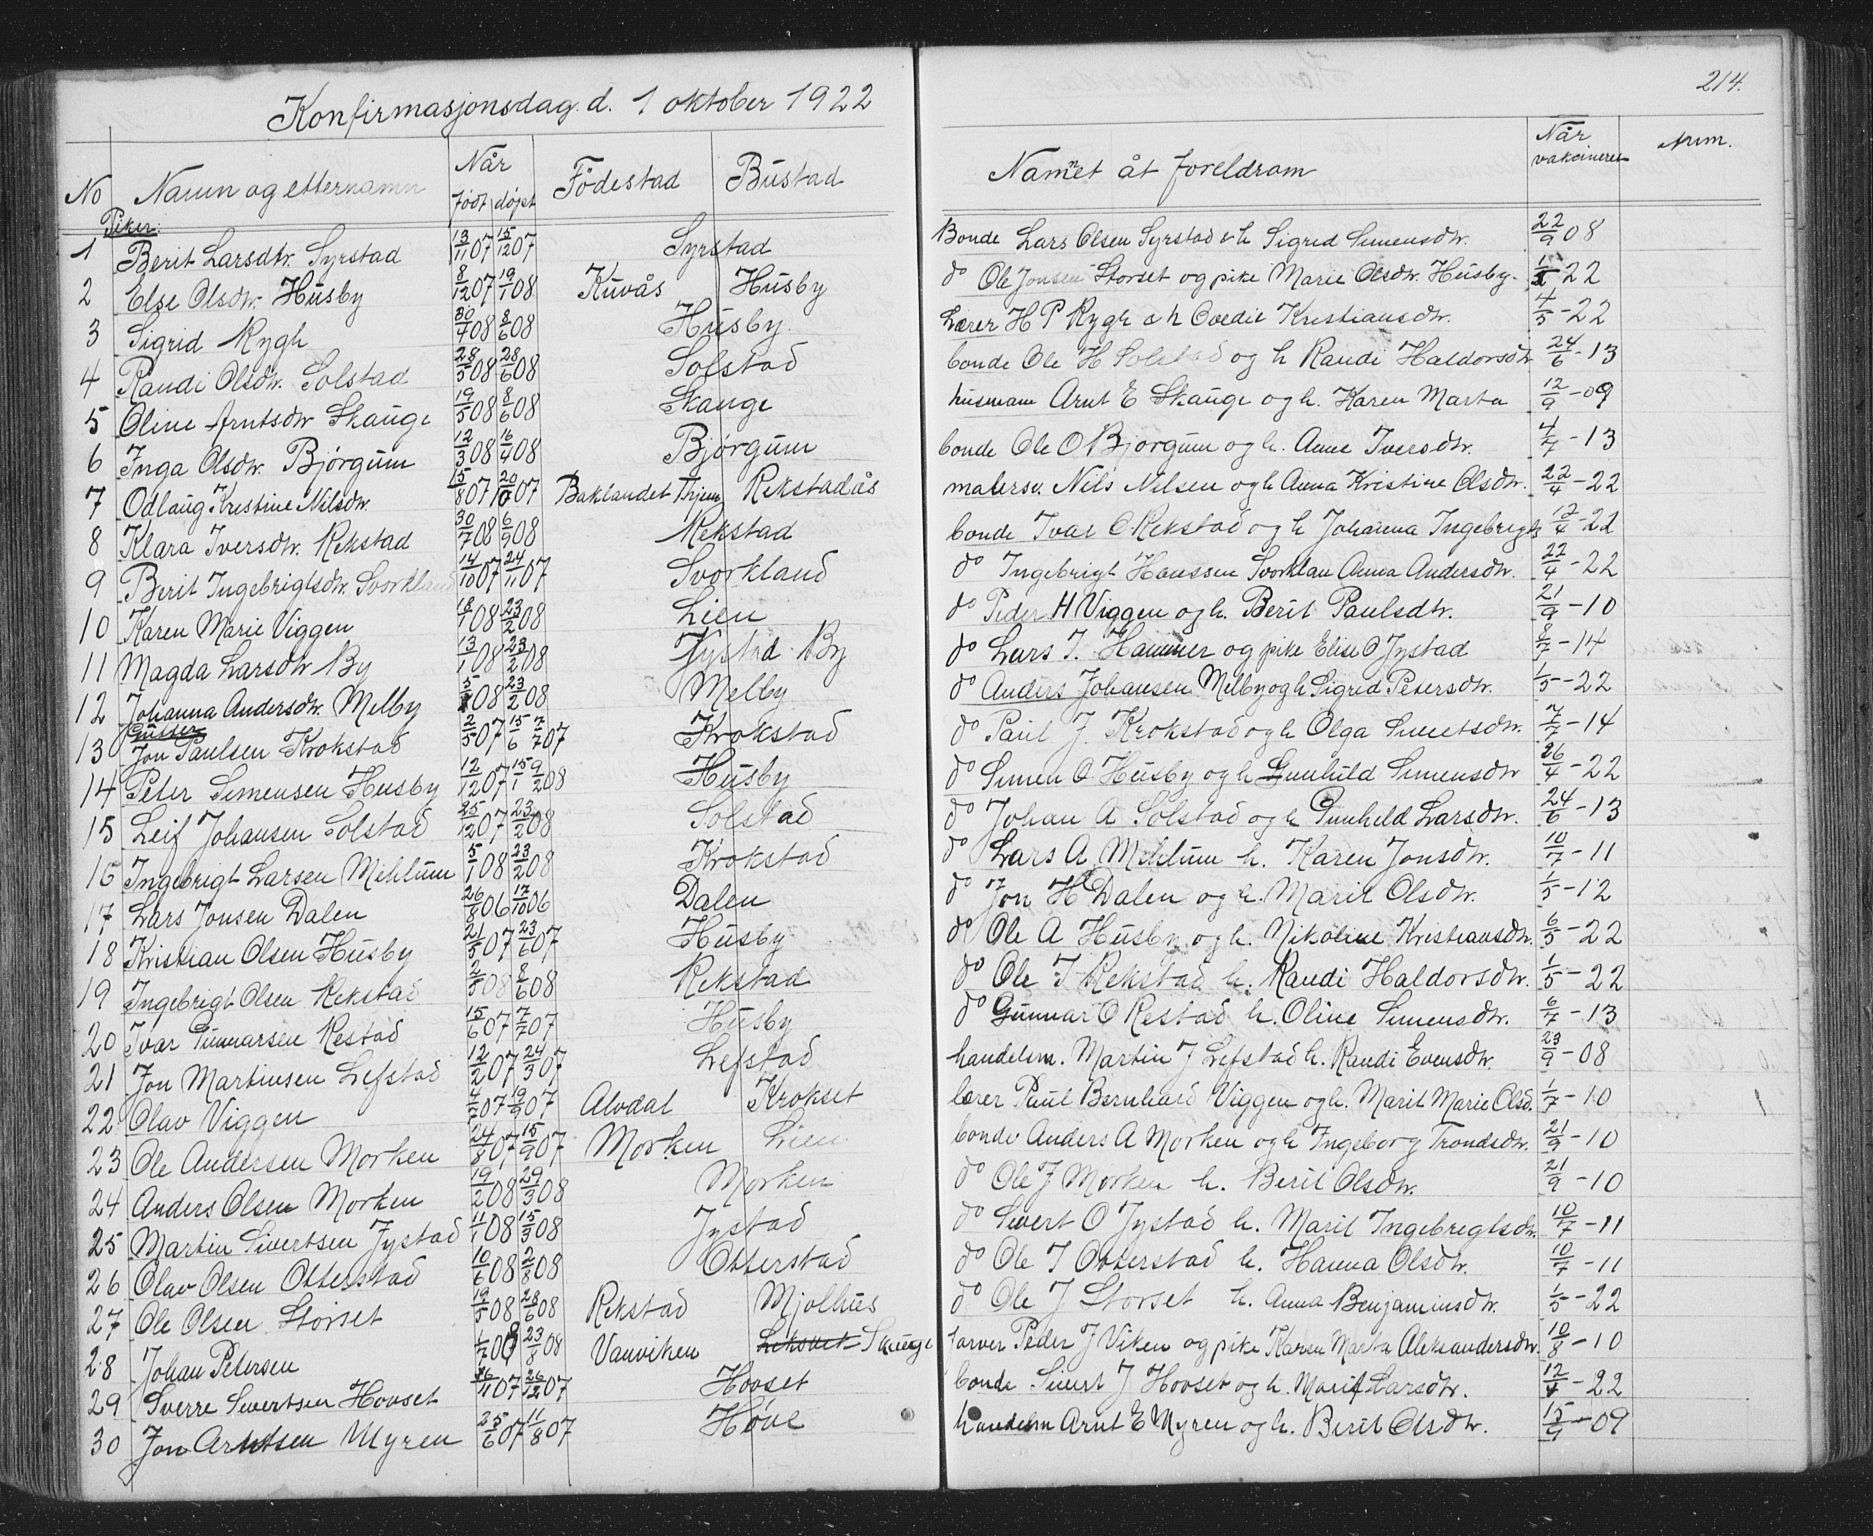 214.
Konfirmasjonsdag d. 1 oktober 1922
No Namn og etternamn Når født døpt Födestad Bustad Namnet åt foreldram Når vakcineret Anm.
Piker:
1 Berit Larsdtr. Syrstad 13/11 07 15/12 07 Syrstad Bonde Lars Olsen Syrstad & h Sigrid Simensdtr. 22/9 08
2 Else Olsdtr. Husby 8/12 07 19/1 08 Kuvås Husby do Ole Jonsen Storset og pike Marie Olsdtr. Husby. 22
3 Sigrid Rygh 30/4 08 8/6 08 Husby. Lærer H P Rygh o h Kristiansdtr. 4/5 - 22
4 Randi Olsdtr. Solstad 28/5 08 28/6 08 Solstad bonde Ole H Solstad og h Randi Haldorsdtr 24/6 - 13
5 Oline Arntsdtr Skauge 19/5 08 8/6 08 Skauge husmann Arnt E Skauge og h. Karen Marta 12/9 - 09
6 Inga Olsdtr. Bjørgum 12/3 08 16/4 08 Bjørgum bonde Ole O Bjørgum og h. Anne Iversdtr. 4/7 - 13
7 Odlaug Kristine Nilsdtr. 5/8 07 20/10 07 Baklandet Trjem Rekstadås malersv. Nils Nilsen og h Anna Kristine Olsdtr. 22/4 - 22
8 Klara Iversdtr. Rekstad 30/7 08 6/9 08 Rekstad bonde Ivar O Rekstad og h Johanna Ingebrigts 12/4 - 22
9 Berit Ingebrigtsdtr. Svorkland 14/10 07 24/11 07 Svorkland do Ingebrigt Hanssen Svorklan Anna Andersdtr. 22/4 - 22
10 Karen Marie Viggen 18/1 08 23/2 08 Lien do Peder H Viggen og h. Berit Paulsdtr. 21/9 - 10
11 Magda Larsdtr By 13/1 08 23/2 08 Jystad By do Lars I. Hammer og pike Elise O Jystad 8/7 - 14
12 Johanna Andersdtr. Melby 5/1 08 23/2 08 Melby do Anders Johansen Melby og h Sigrid Petersdtr. 1/5 - 22
Gutter
13 Jon Paulsen Krokstad 2/5 07 15/6 7/7 07 Krokstad do Paul J. Krokstad og h Olga Sivertsdtr. 7/7 - 14
14 Peter Simensen Husby 12/12 07 15/1 9/2 08 Husby do Simen O Husby og h Gunhild Simensdtr 26/4 - 22
15 Leif Johansen Solstad 25/12 07 23/2 08 Solstad do Johan A Solstad og h Gunhild Larsdtr. 24/6 - 13
16 Ingebrigt Larsen Mehlum 5/1 08 23/2 08 Krokstad do Lars A. Mehlum h. Karen Jonsdtr. 10/7 - 11
17 Lars Jonsen Dalen 26/8 06 17/10 06 Dalen do Jon H Dalen og h. Marit Olsdtr. 1/5 - 12
18 Kristian Olsen Husby 21/5 07 23/6 07 Husby do Ole A Husby og h. Nikoline Kristiansdtr. 6/5 - 22
19 Ingebrigt Olsen Rekstad 2/5 08 8/6 08 Rekstad do Ole I Rekstad h. Randi Haldorsdtr. 1/5 - 22
20 Ivar Gunnarsen Restad 15/6 07 7/7 07 Husby do Gunnar O Restad h. Oline Simensdtr. 6/7 - 13
21 Jon Martinsen Lefstad 12/2 07 24/3 07 Lefstad handelsm. Martin J Lefstad h. Randi Evensdtr. 23/9 - 08
22 Olav Viggen 07 19/9 07 Alvdal Krokset lærer Paul Bernhard Viggen og h. Marit Marie Olsd. 1/7 - 10
23 Ole Andersen Morken 24/8 07 15/9 07 Morken Lien bonde Anders A Morken og h Ingeborg Trondsdtr. 21/9 - 10
24 Anders Olsen Morken 19/2 08 29/3 08 Morken do Ole J Morken h. Berit Olsdtr. 21/9 - 10
25 Martin Sivertsen Jystad 11/1 08 15/3 08 Jystad do Sivert O Jystad h. Marit Ingebregtsdtr. 10/7 - 11
26 Olav Olsen Otterstad 10/6 08 2/8 08 Otterstad do Ole I Otterstad h. Hanna Olsdtr. 10/7 - 11
27 Ole Olsen Storset 19/5 08 28/6 08 Rekstad Mjølhus do Ole J Storset h. Anna Benjaminsdtr. 1/5 - 22
28 Johan Petersen 1/7 08 23/8 08 Vanviken Leksvik Skauge farver Peder J Viken og pike Karen Marta Aleksandersdtr. 10/8 - 10
29 Sverre Sivertsen Hovset 26/11 07 26/12 07 Hovset bonde Sivert J Hovset og h. Marit Larsdtr. 12/4 - 22
30 Jon Arntsen Myren 25/6 07 11/8 07 Høve handelsm Arnt E Myren og h. Berit Olsdtr. 15/9 - 09